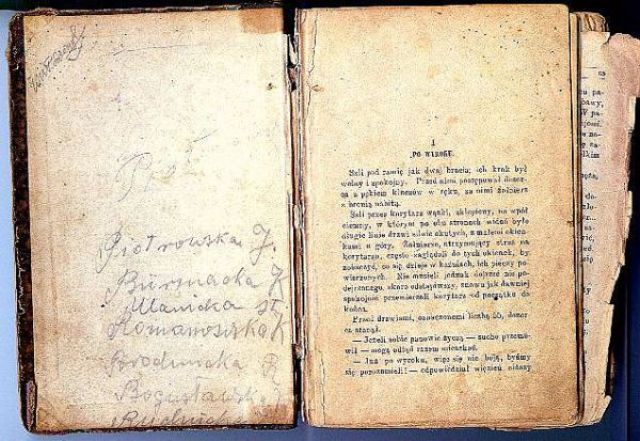 Piotrowska J.
Biernacka J
Ulanicka St
Romanowska J
Brodnicka R
Bogusławska J
I
PO WYROKU.
Szli pod ramię jak dwaj bracia; ich krok był
wolny i spokojny. Przed nimi postępował dozor-
ca z pękiem kluczów w ręku, za nimi żołnierz
z bronią nabitą.
Szli przez korytarz wązki, sklepiony, na wpół
ciemny, w którym po obu stronach widać było
długie linie drzwi silnie okutych, z małemi okien-
kami u góry. Żołnierze, utrzymujący straż na
korytarzu, często zaglądali do tych okienek, by
zobaczyć, co się dzieje w kaźniach, ich pieczy po-
wierzonych. Nie mogli jednak dojrzeć nic po-
dejrzanego, skoro odstąpiwszy, znowu jak dawniej
spokojnie przemierzali korytarz od początku do
końca.
Przed drzwiami, oznaczonemi liczbą 55, dozor-
ca stanął.
— Jeżeli sobie panowie życzą — sucho przemó-
wił — mogą odtąd razem mieszkać.
— Już po wyroku, więc się nie boją, byśmy
się porozumieli! — odpowiedział więzień niższy